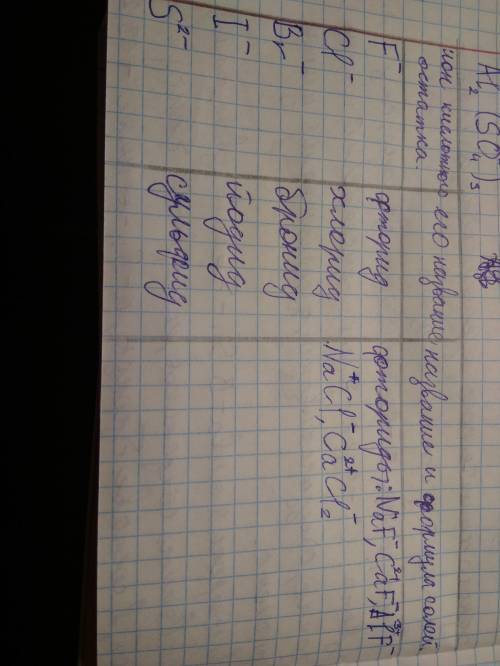 Al₂(SO₄)₃
ион кислотного остатка. его название название и формула солей.
F⁻ фторид фториды: Na⁺F⁻, Ca²⁺F⁻, Al³⁺F⁻
Cl⁻ хлорид Na⁺Cl⁻, Ca²⁺Cl₂⁻
Br⁻ бромид
I⁻ йодид
S²⁻ сульфид